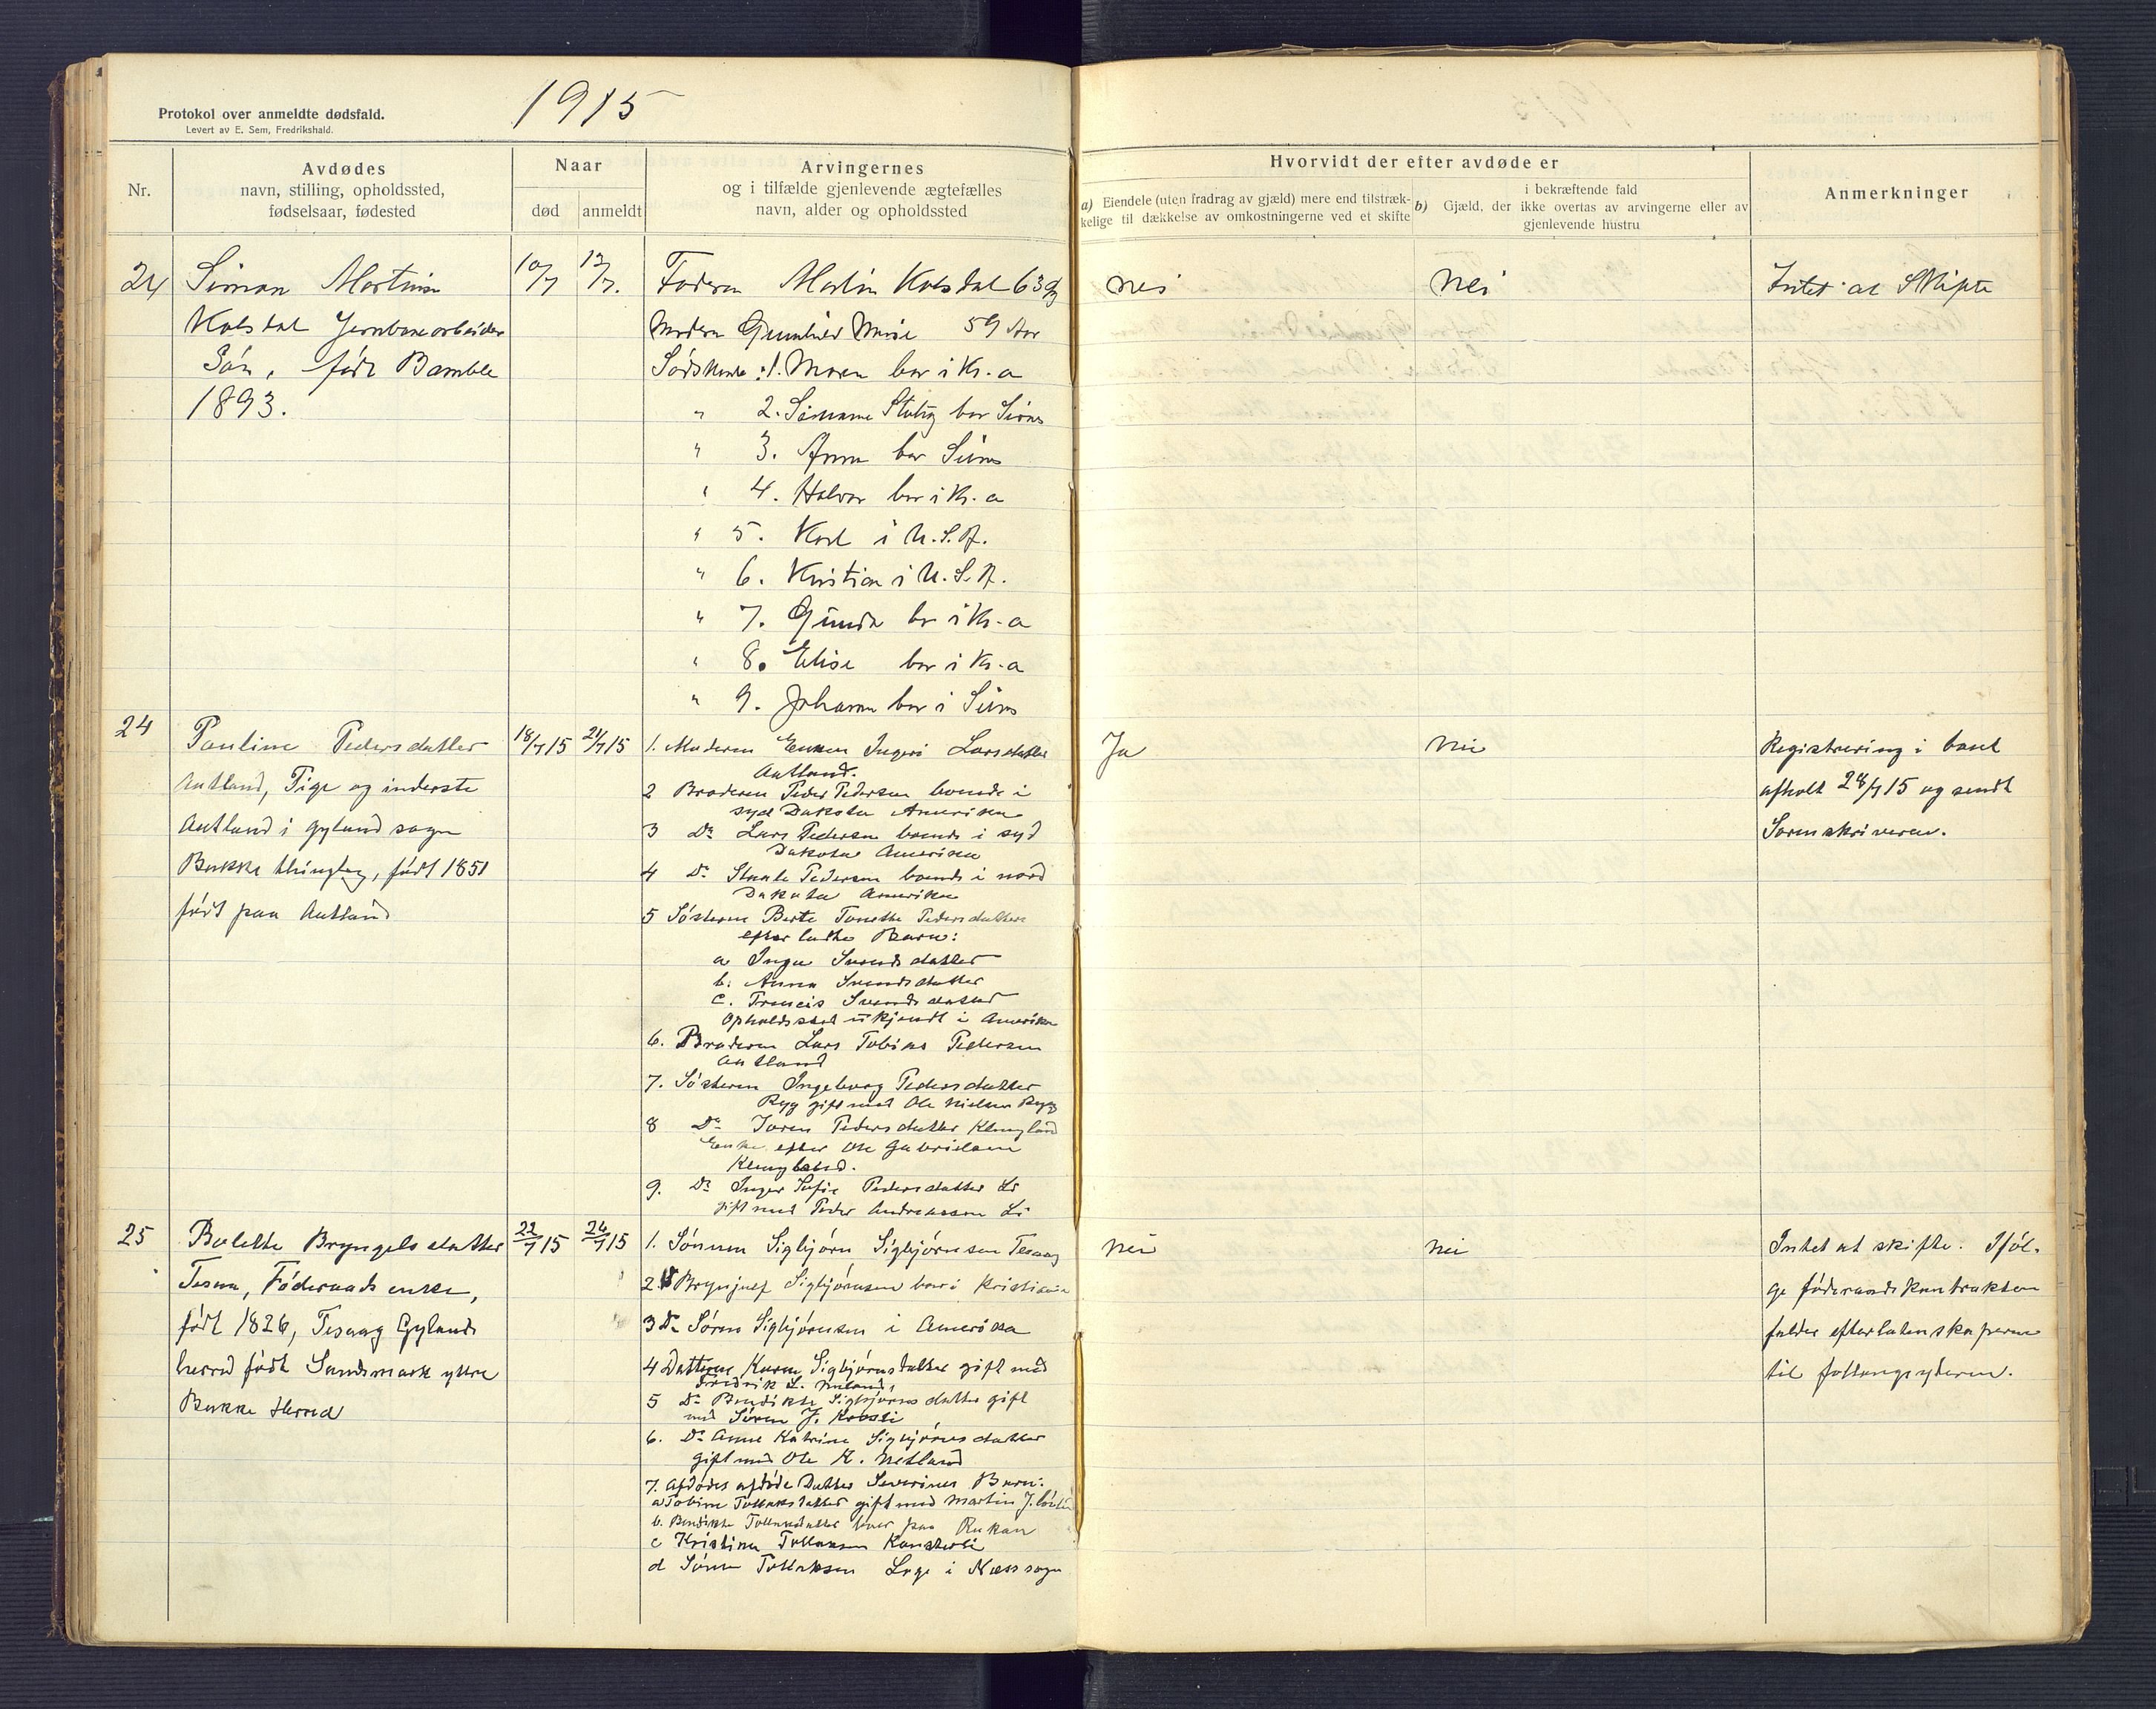 Protokol over anmeldte dødsfald.
Levert av E. Sem, Fredrikshald.
1915
Nr.
Avdødes
navn, stilling, opholdssted,
fødselsaar, fødested
Naar
død
anmeldt
Arvingernes
og i tilfælde gjenlevende ægtefælles
navn, alder og opholdssted
Hvorvidt der efter avdøde er
a) Eiendele (uten fradrag av gjæld) mere end tilstræk-
kelige til dækkelse av omkostningerne ved et skifte
i bekræftende fald
b) Gjæld, der ikke overtas av arvingerne eller av
gjenlevende hustru
Anmerkninger
24
Simon Martinsen
Kolsdal Jernbanearbeider
Søn, født Bamble
1893.
10/7
12/7.
Faderen Martin Kolsdal 63
Modern Gunhild Marie 59 Aar
Sødskende: 1. Maren bor i Kr.a
" 2. bor Sirnes
" 3. Anna bor Sirnes
" 4. Halvor bor i Kr.a
" 5. Karl i U.S.A.
" 6. Kristian i U.S.A.
" 7. Gunda bor i Kr.a
" 8. Elise bor i Kr.a
" 9. Johanna bor i Sirnes
nei
nei
Intet at Skifte
24
Pauline Pedersdatter
Autland, Pige og inderste
Autland i Gyland sogn
Bakke thinglag, født 1851
født paa Autland
18/7 15
21/7 15
1. Moderen Enken Ingeri Larsdatter
Autland.
2 Broderen Peder Pedersen boende i
syd Dakota Amerika
3 Do Lars Pedersen boende i syd
Dakota Amerika
4 Do Staale Pedersen boende i nord
Dakota Amerika
5 Søsteren Berte Tonette Pedersdatters
efterladte Barn:
a Inga Svendsdatter
b. Anna Svendsdatter
c. Francis Svendsdatter
Opholdssted ukjendt i Amerika
6. Broderen Lars Tobias Pedersen
Autland
7. Søsteren Ingeborg Pedersdatter
Ryg gift med Ole Nielsen Ryg
8 Do Joren Pedersdatter Klungland
Enke efter Ole Gabrielsen
Klungland.
9. Do Inger Sofie Pedersdatter Li
gift med Peder Andreassen Li
Ja
nei
Registrering i boet
afholt 28/7 15 og sendt
Sorenskriveren.
25
Bolette Bryngelsdatter
Tesaa, Føderaadsenke,
født 1826, Tesaag Gylands
herred født Sandsmark ytre
Bakke Herred
22/7 15
24/7 15
1. Sønnen Sigbjørn Sigbjørnsen Tesaag
2. Brynjulf Sigbjørnsen bor i Kristiania
3 Do Søren Sigbjørnsen i Amerika
4 Datteren Karen Sigbjørnsdatter gift med
Fredrik L.
5 Do Bendikte Sigbjørnsdatter gift
med Søren J.
6. Do Anne Katrine Sigbjørnsdatter
gift med Ole K. Netland
7. Afdødes afdøde Datter Severines Barn:
a Tobine Tollaksdatter gift med Martin J.
b. Bendikte Tollaksdatter bor paa Rukan
c Kristian Tollaksen
d Søren Tollaksen Loge i Næss sogn
nei
nei
Intet at skifte. Iføl-
ge føderaadskontrakten
falder efterladenskaperne
til foltangsyderen.